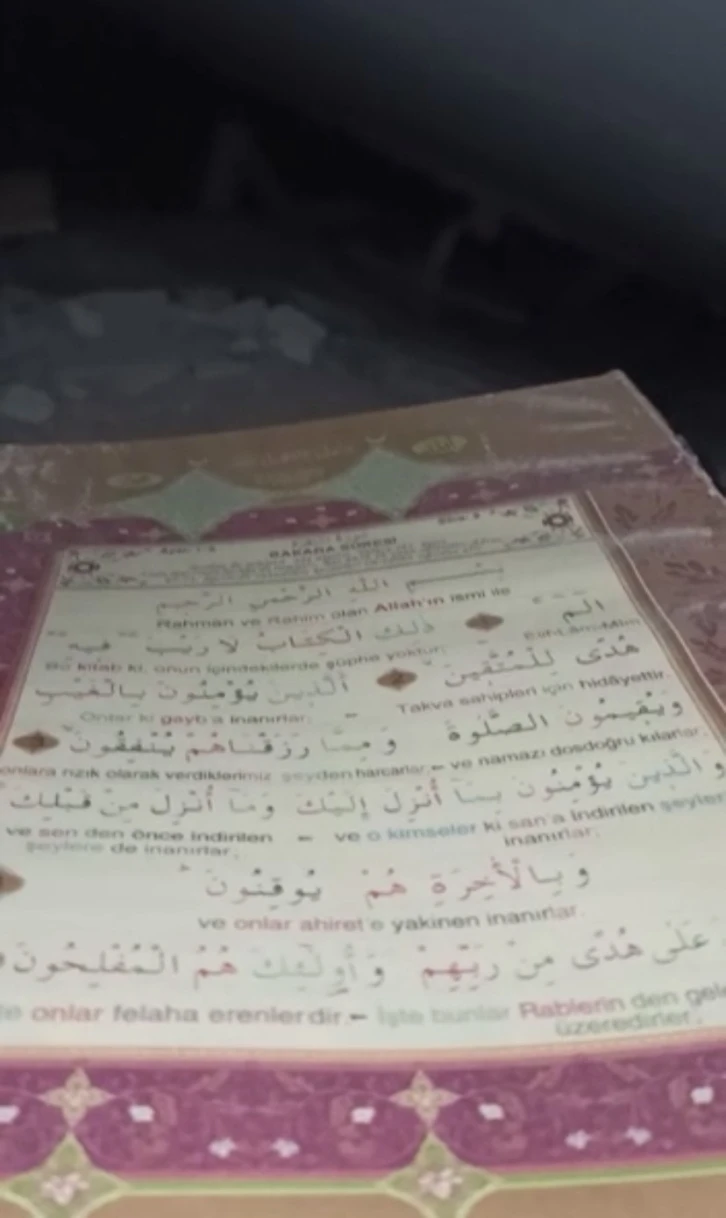 BAKARA SURESİ
بِسْــمِ اللّٰهِ الرَّحْمٰنِ الرَّحِيمِ
Rahman ve Rahim olan Allah'ın ismi ile
الٓمٓ ذٰلِكَ الْكِتَابُ لَا رَيْبَ فِيهِ
Elif-Lâm-Mîm Bu kitab ki, onun içindekilerde şüphe yoktur.
هُدًى لِلْمُتَّقِينَ اَلَّذِينَ يُؤْمِنُونَ بِالْغَيْبِ
Takva sahipleri için hidâyettir. Onlar ki gayb'a inanırlar.
وَيُقِيمُونَ الصَّلٰوةَ وَمِمَّا رَزَقْنَاهُمْ يُنْفِقُونَ
ve namazı dosdoğru kılarlar. – onlara rızık olarak verdiklerimiz şeyden harcarlar.
وَالَّذِينَ يُؤْمِنُونَ بِمَا أُنْزِلَ إِلَيْكَ وَمَا أُنْزِلَ مِنْ قَبْلِكَ
ve o kimseler ki san'a indirilen şeyler inanırlar. – ve sen den önce indirilen şeylere de inanırlar.
وَبِالْاٰخِرَةِ هُمْ يُوقِنُونَ
ve onlar ahiret'e yakinen inanırlar.
عَلٰى هُدًى مِنْ رَبِّهِمْ وَأُولٰٓئِكَ هُمُ الْمُفْلِحُونَ
İşte bunlar Rablerin den üzeredirler. – onlar felaha erenlerdir.